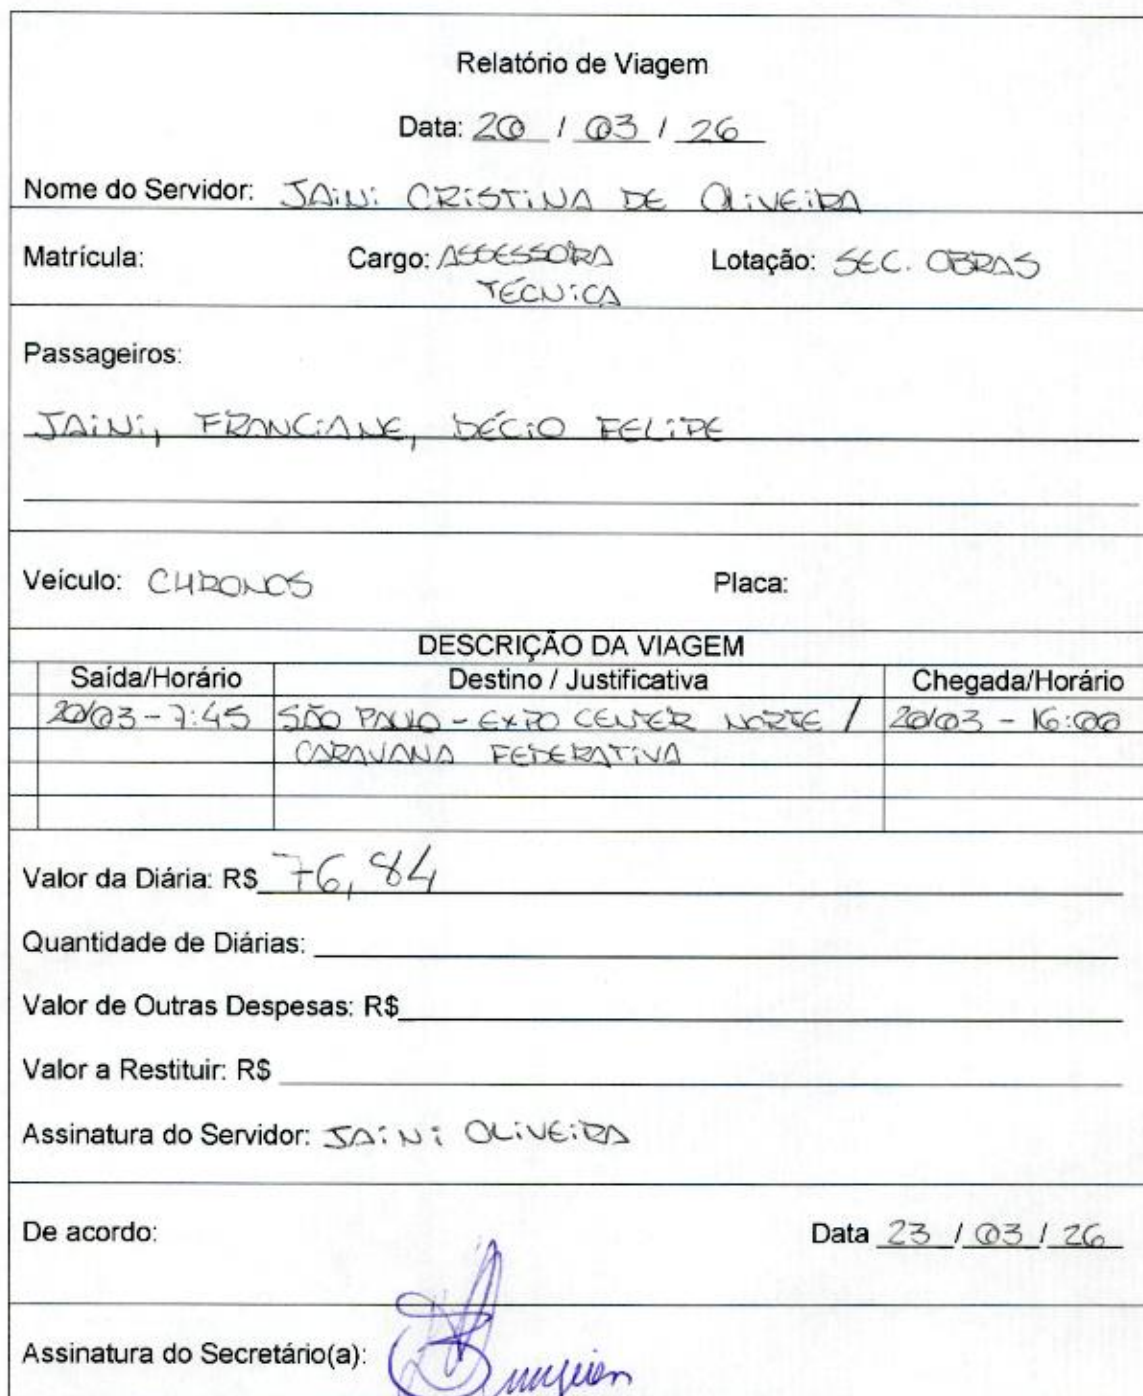 Relatório de Viagem
Data: 20 / 03 / 26
Nome do Servidor: JAINI CRISTINA DE OLIVEIRA
Matrícula: Cargo: ASSESSORA TÉCNICA Lotação: SEC. OBRAS
Passageiros:
JAINI, FRANCIANE, DÉCIO FELIPE
Veículo: CHRONOS Placa:
DESCRIÇÃO DA VIAGEM
Saída/Horário Destino / Justificativa Chegada/Horário
20/03 - 7:45 SÃO PAULO - EXPO CENTER NORTE / 20/03 - 16:00
CARAVANA FEDERATIVA
Valor da Diária: R$ 76,84
Quantidade de Diárias:
Valor de Outras Despesas: R$
Valor a Restituir: R$
Assinatura do Servidor: JAINI OLIVEIRA
De acordo: Data 23 / 03 / 26
Assinatura do Secretário(a):